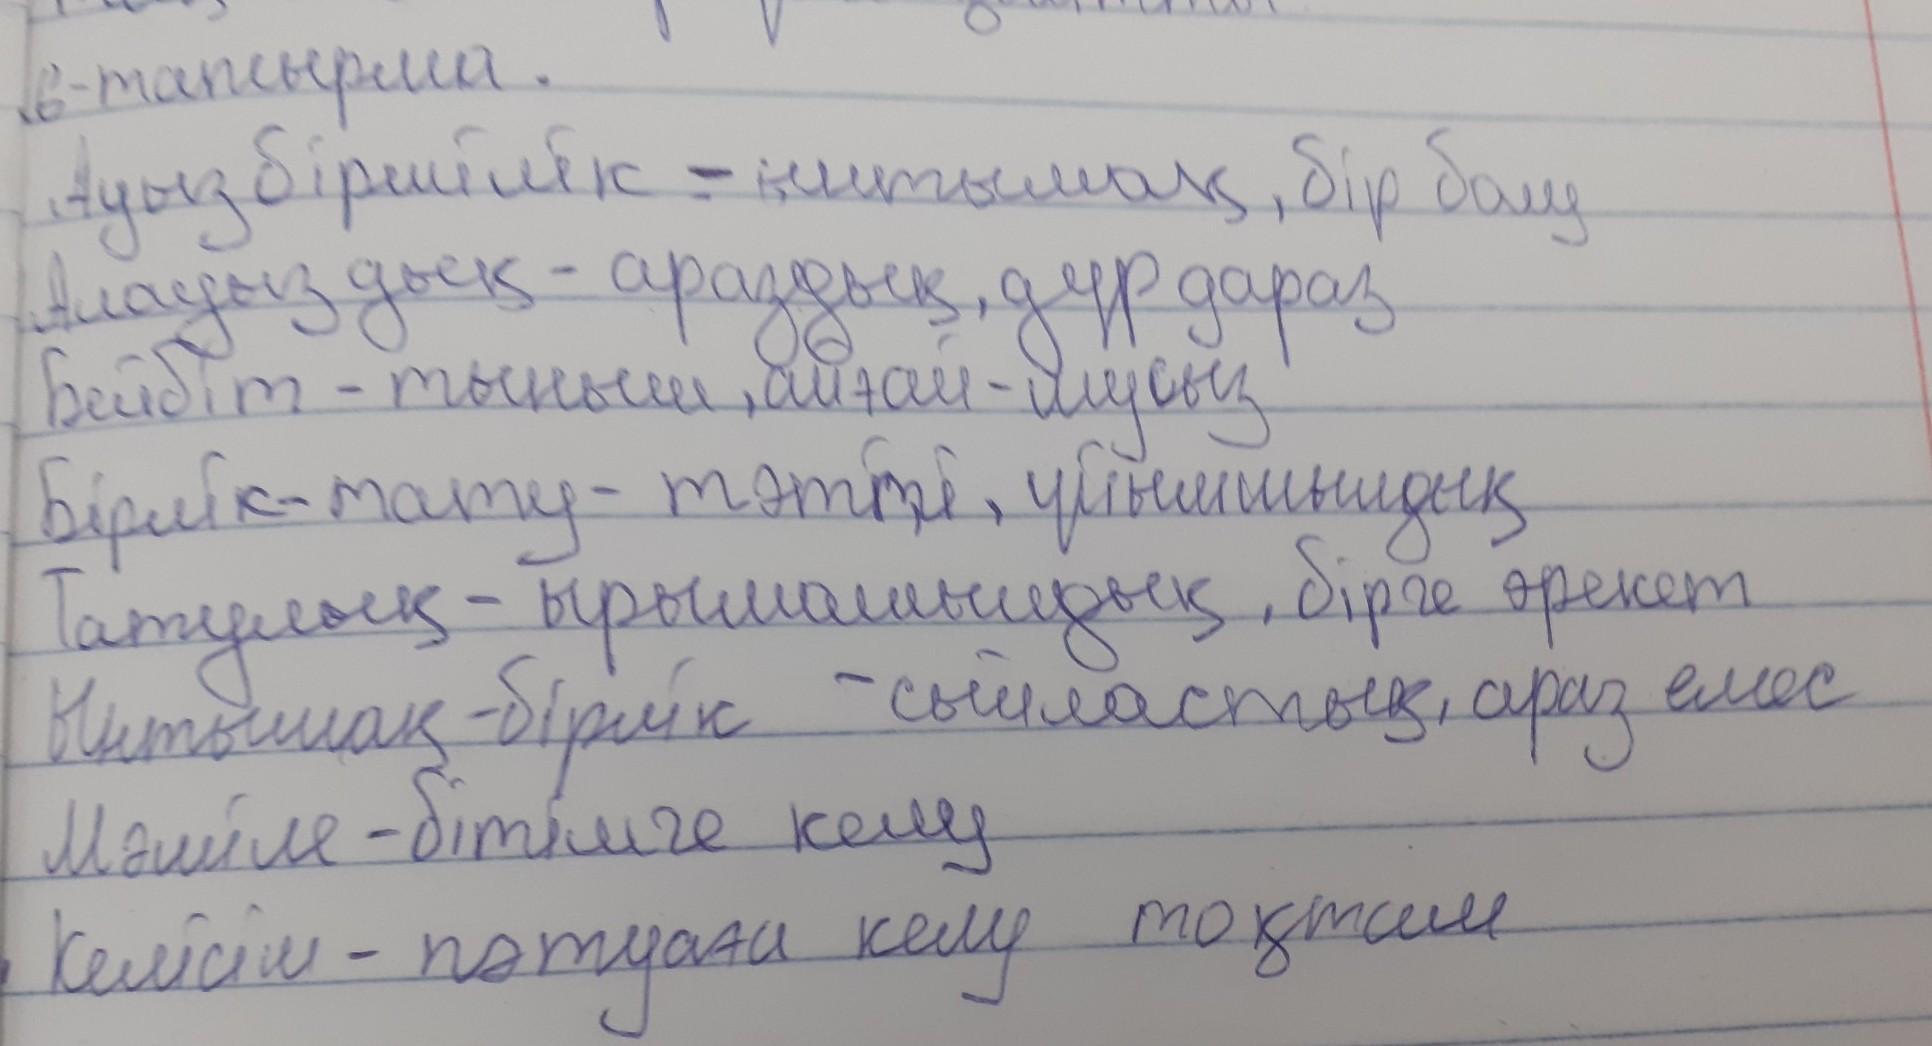 6-тапсырма.
Ауызбіршілік - ынтымақ, бір болу
Алауыздық - араздық, дүрдараз
Бейбіт - тыныш, айғай-шусыз
Бірлік-тату - тәтті, ұйымшылдық
Татулық - ырымашылдық, бірге әрекет
Ынтымақ-бірлік - сыйластық, араз емес
Мәміле - бітімге келу
Келісім - пәтуаға келу тоқтам